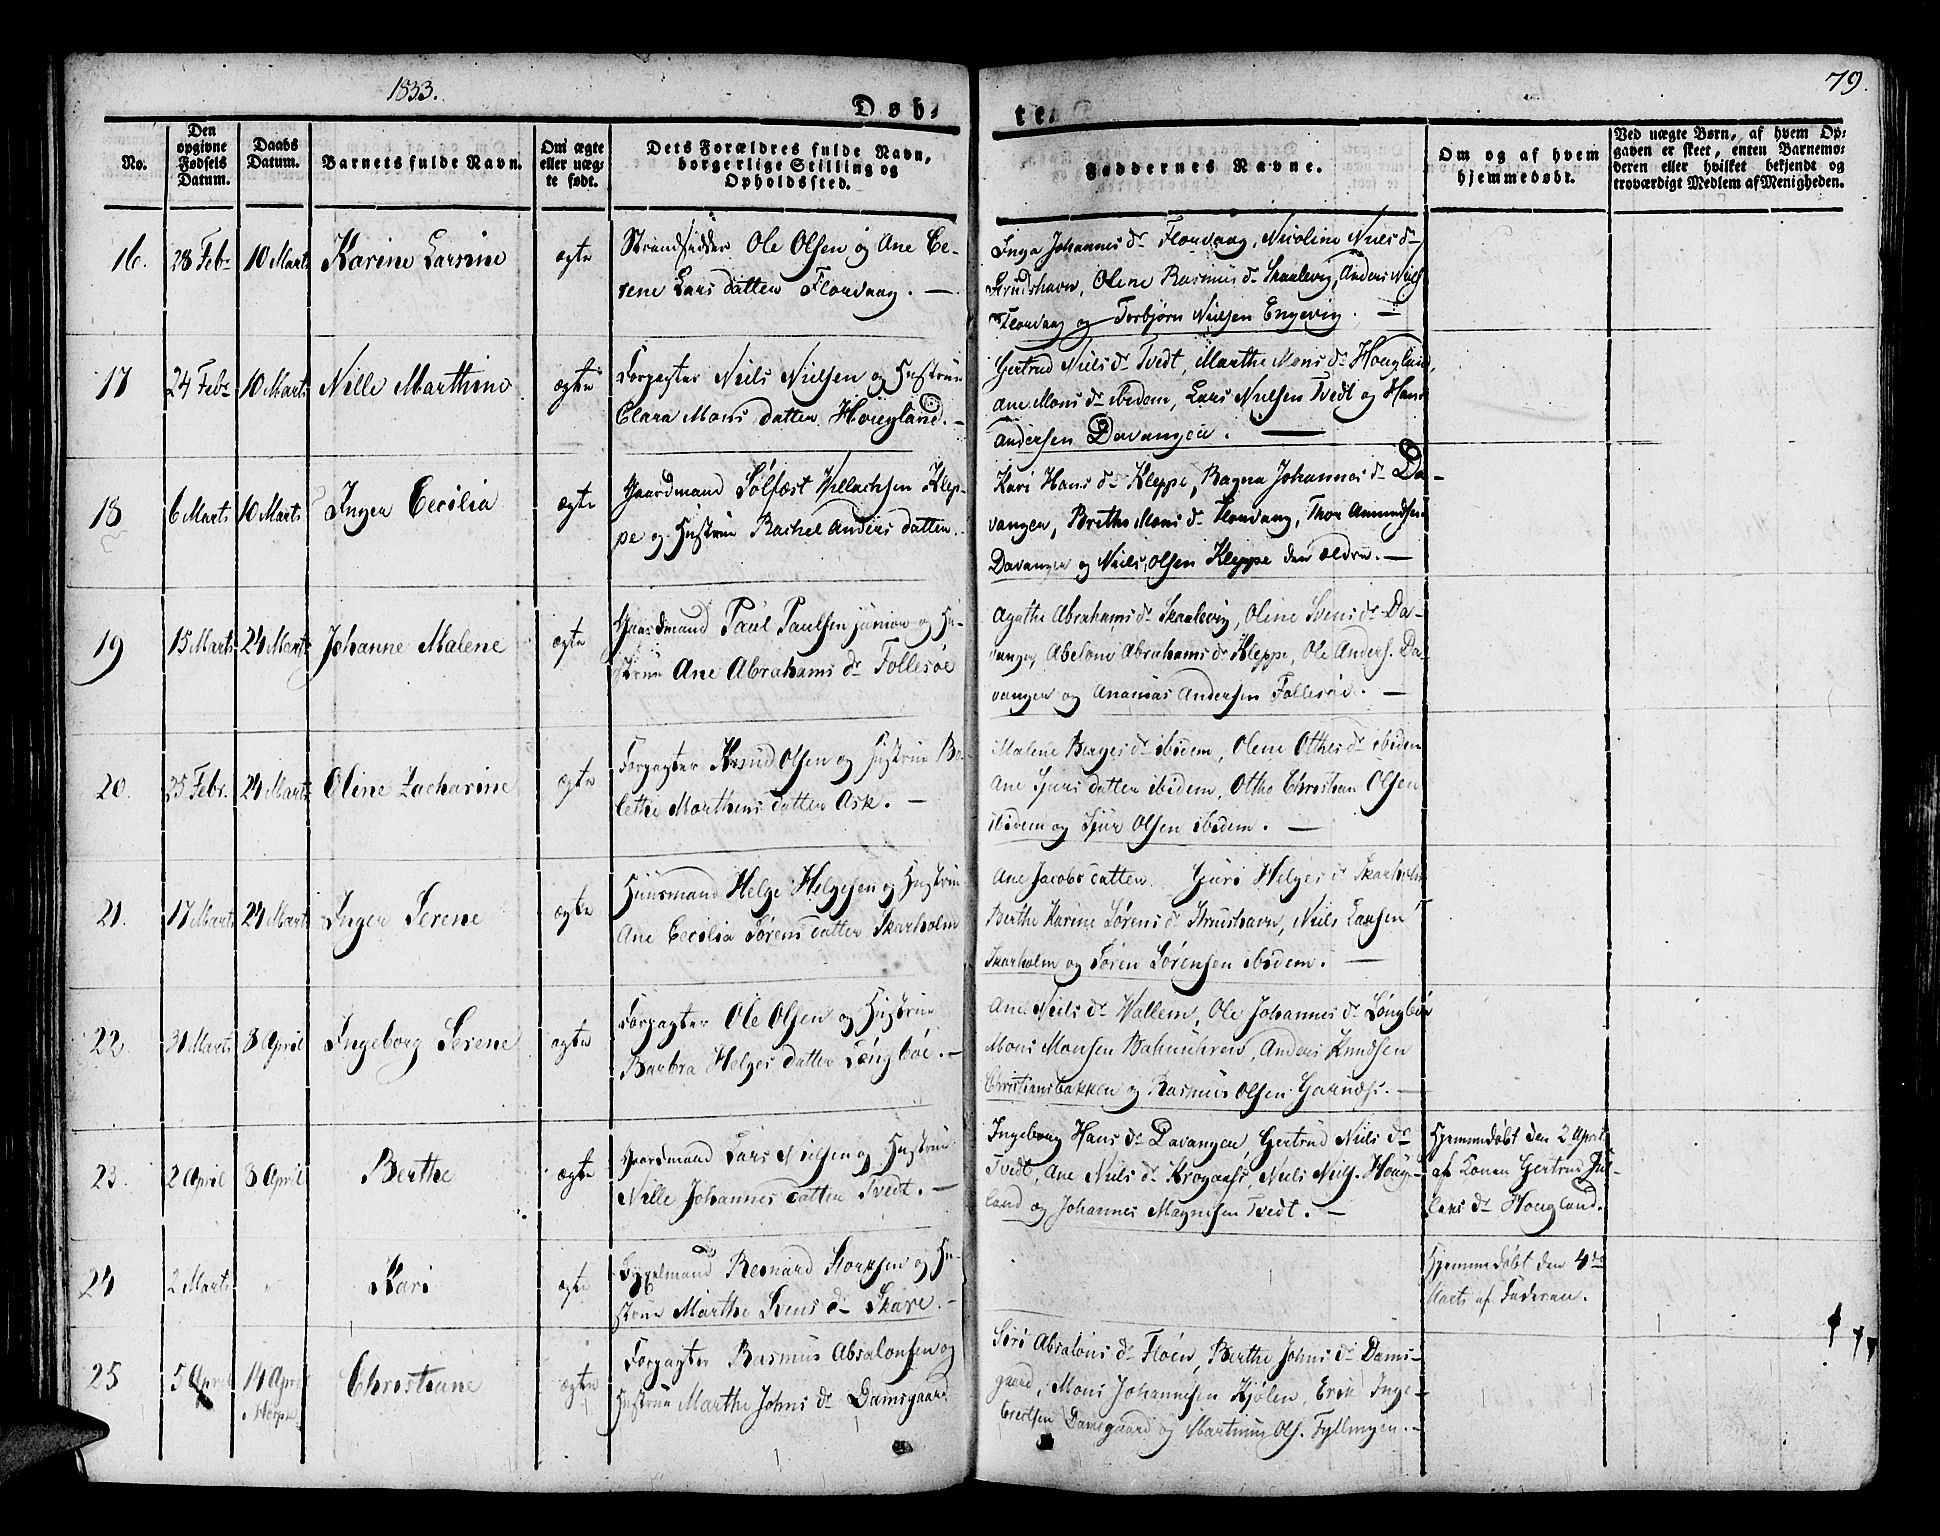 1833.
79.
Døb-
te.
No.
Den opgivne Fødsels Datum.
Daabs Datum.
Barnets fulde Navn.
Om ægte eller uægte født.
Dets Forældres fulde Navn, borgerlige Stilling og Opholdssted.
Faddernes Navne.
Om og af hvem hjemmedøbt.
Ved uægte Børn, af hvem Opgaven er skeet, enten Barnemoderen eller hvilket bekjendt og troværdigt Medlem af Menigheden.
16. 28 Febr 10 Marts Karine Larsine ægte
Strandsidder Ole Olsen og Ane Ce-
rene Lars datter Florvaag. —
Inga Johannes dr Florvaag, Nicoline Niels dr
Strudshavn, Oline Rasmus dr Skaalevig, Anders Niels
Florvaag og Torbjørn Nielsen Engevig. —
17 24 Febr 10 Marts Nille Marthine ægte
Forpagter Niels Nielsen og Hustrue
Clara Mons datter Hougland. —
Gertrud Niels dr Tvedt, Marthe Mons dr Hougland,
Ane Mons dr ibidem, Lars Nielsen Tvedt og Hans
Andersen Davangen. —
18 6 Marts 10 Marts Inger Cecilia ægte
Gaardmand Sølfæst Villachsen Klep-
pe og Hustrue Rachel Anders datter.
Kari Hans dr Kleppe, Ragna Johannes dr Da-
vangen, Brethe Mons dr Florvaag, Thor Amundsen
Davangen og Niels Olsen Kleppe den ældre. —
19 15 Marts 24 Marts Johanne Malene ægte
Gaardmand Paul Paulsen junior og Hu-
strue Ane Abrahams dr Follesøe
Agathe Abrahams dr Skaalevig, Oline Svens dr Da-
vangen, Abelone Abrahams dr Kleppe, Ole Anders. Da-
vangen og Ananias Andersen Follesøe. —
20. 25 Febr. 24 Marts Oline Zacharine ægte
Forpagter Knud Olsen og Hustrue Bo-
lethe Marthens datter Ask. —
Malene Berges dr ibidem, Olene Othes dr ibidem
Ane Sjurs datter ibidem, Otho Christian Olsen
ibidem og Sjur Olsen ibidem. —
21. 17 Marts 24 Marts Inger Serene ægte
Huusmand Helge Helgesen og Hustrue
Ane Cecilia Sørens datter Skarholm
Ane Jacobs datter Guri Helges dr Skarholm
Berthe Karine Sørens dr Struishavn, Niels Larsen
Skarholm og Søren Sørensen ibidem. —
22. 31 Marts 8 April Ingeborg Serene ægte
Forpagter Ole Olsen og Hustrue
Barbra Helges datter Længbøe. —
Ane Niels dr Vallem, Ole Johannes dr Længbøe
Mons Monsen , Anders Knudsen
Christiansbakken og Rasmus Olsen Garnæs. —
23. 2 April 8 April Berthe ægte
Gaardmand Lars Nielsen og Hustrue
Nille Johannes datter Tvedt. —
Ingeborg Hans dr Davangen, Gertrud Niels dr
Tvedt, Ane Niels dr Krogaas, Niels Niels. Houg-
land og Johannes Magnesen Tvedt. —
Hjemmedøbt den 2 April
af Konen Gertrue
dr Hougland.
24 2 Marts " Kari ægte
Bernard og Hu-
strue Marthe dr Skare. —
Hjemmedøbt den 4de
Marts af Faderen.
25 5 April 14 April Christiane ægte
Forpagter Rasmus Absalonsen og
Hustrue Marthe Johns dr Damsgaard
Siri Absalons dr Fløen, Berthe Johns dr Dams-
gaard, Mons Johannesen Kjølen, Erik Inge-
brectsen Damsgaard og Martinus Ols. Fyllingen. —